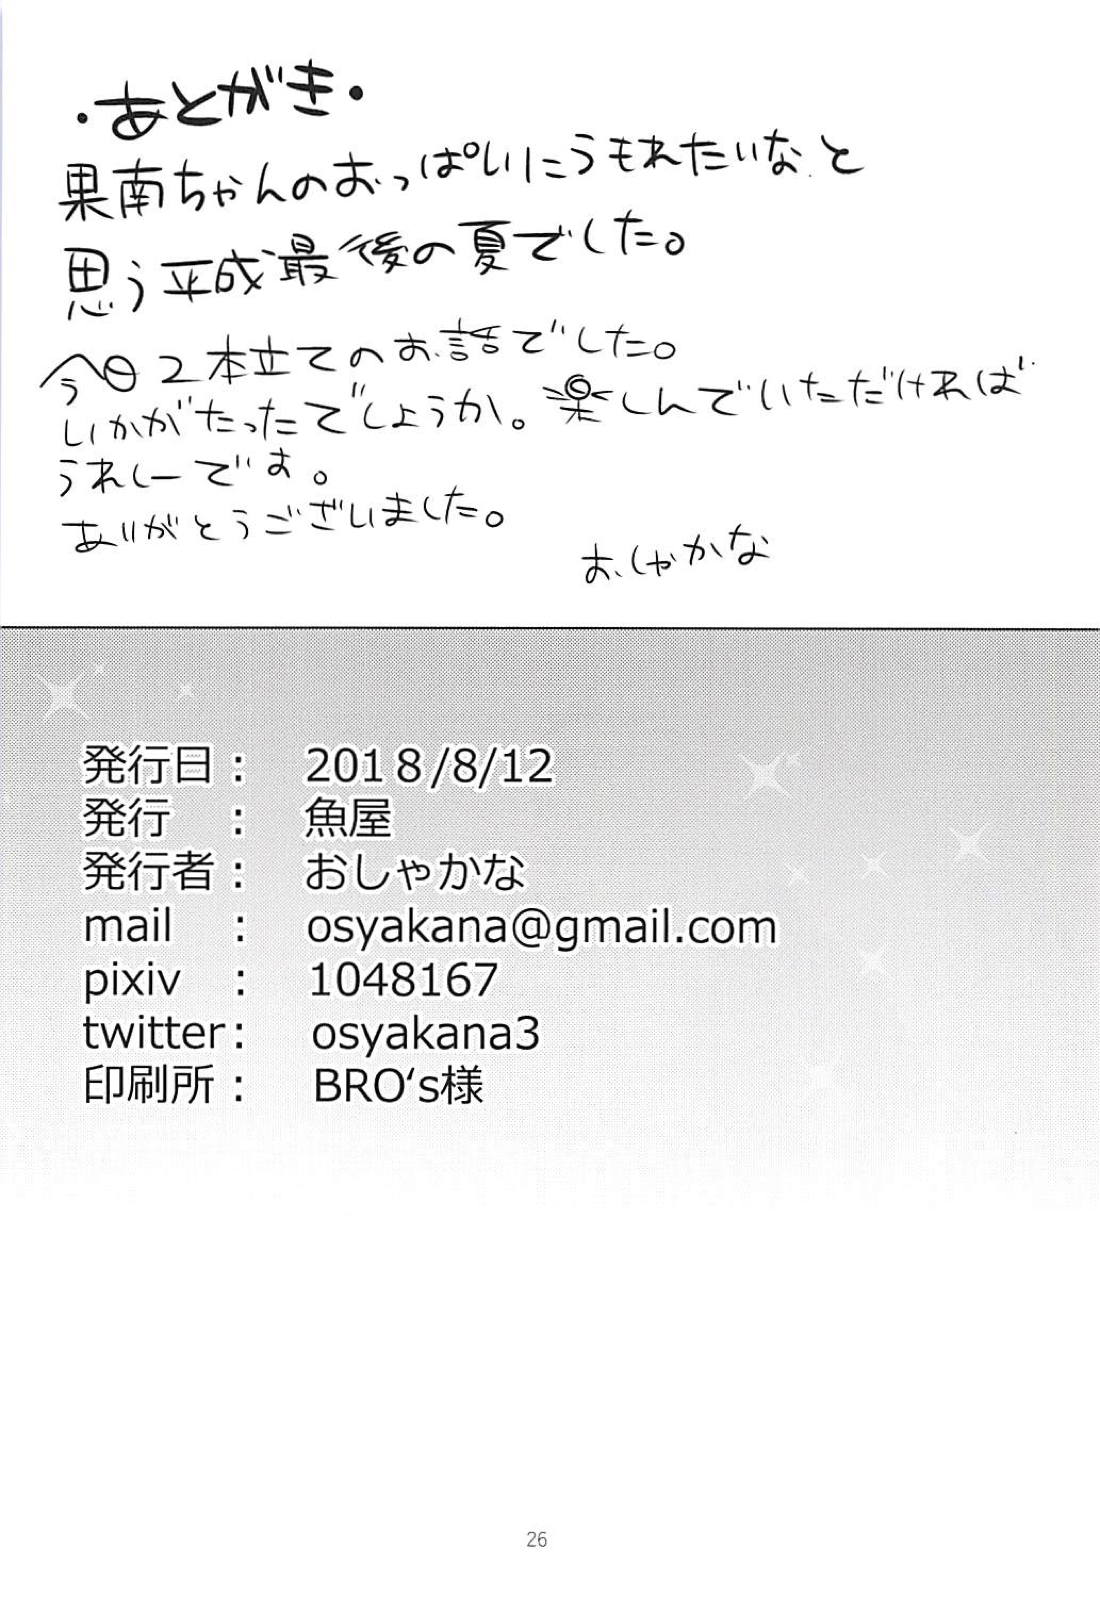 ・あとがき・
果南ちゃんのおっぱいにうもれたいなと
思う平成最後の夏でした。
今日2本立てのお話でした。
いかがたったでしょうか。楽しんでいただければ
うれしーです。
ありがとうございました。
おしゃかな
発行日： 2018/8/12
発行 ： 魚屋
発行者： おしゃかな
mail : osyakana@gmail.com
pixiv : 1048167
twitter: osyakana3
印刷所： BRO‘s様
26